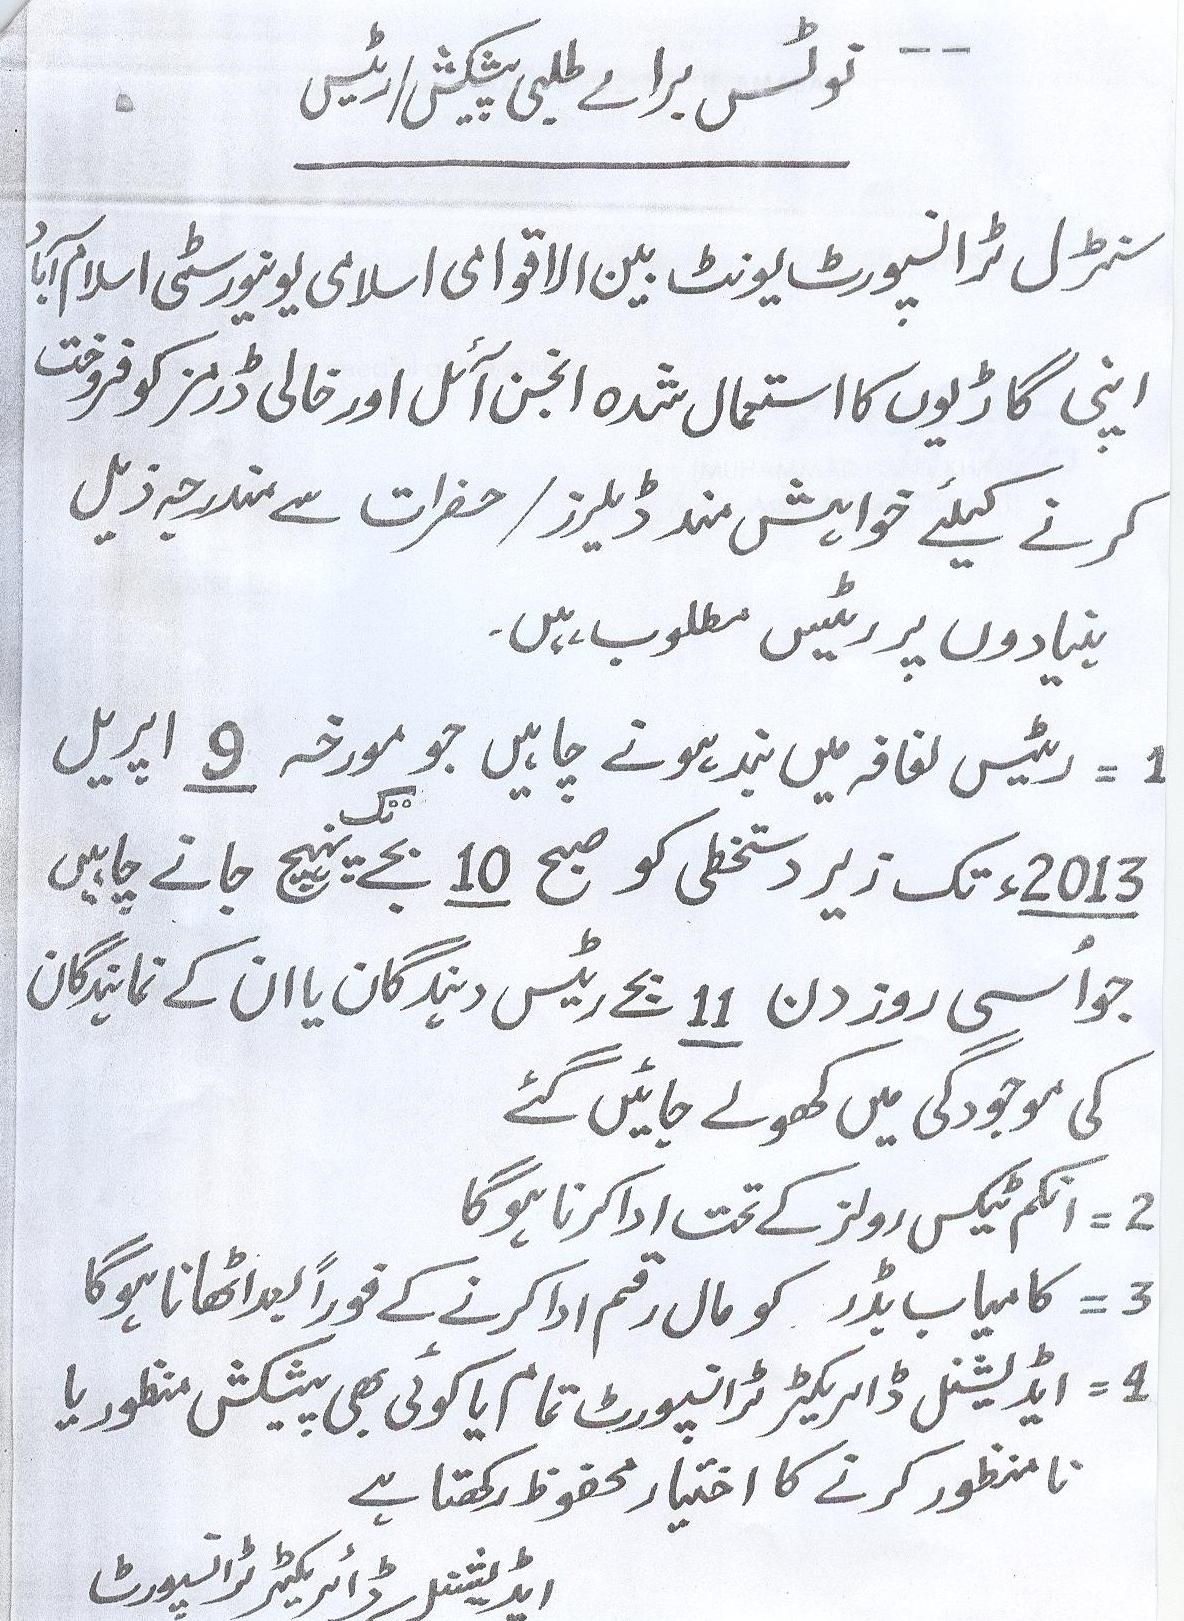 نوٹس برائے طلبی پیشکش/ریٹس
سنٹرل ٹرانسپورٹ یونٹ بین الاقوامی اسلامی یونیورسٹی اسلام آباد
اپنی گاڑیوں کا استعمال شدہ انجن آئل اور خالی ڈرمز کو فروخت
کرنے کیلئے خواہش مند ڈیلرز/حضرات سے مندرجہ ذیل
بنیادوں پر ریٹیس مطلوب ہیں۔
1 = ریٹیس لفافہ میں بند ہونے چاہیں جو مورخہ 9 اپریل
2013ء تک زیر دستخطی کو صبح 10 بجے تک پہنچ جانے چاہیں
جو اُسی روز دن 11 بجے ریٹس دہندگان یا ان کے نمایندگان
کی موجودگی میں کھولے جائیں گئے
2 = انکم ٹیکس رولز کے تحت ادا کرنا ہوگا
3 = کامیاب بڈر کو مال رقم ادا کرنے کے فوراً بعد اٹھانا ہوگا
4 = ایڈیشنل ڈائریکٹر ٹرانسپورٹ تمام یا کوئی بھی پیشکش منظور یا
نا منظور کرنے کا اختیار محفوظ رکھتا ہے
ایڈیشنل ڈائریکٹر ٹرانسپورٹ